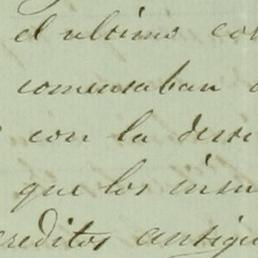 el ultimo co
comensaban
con la
que los insu
creditos antigu